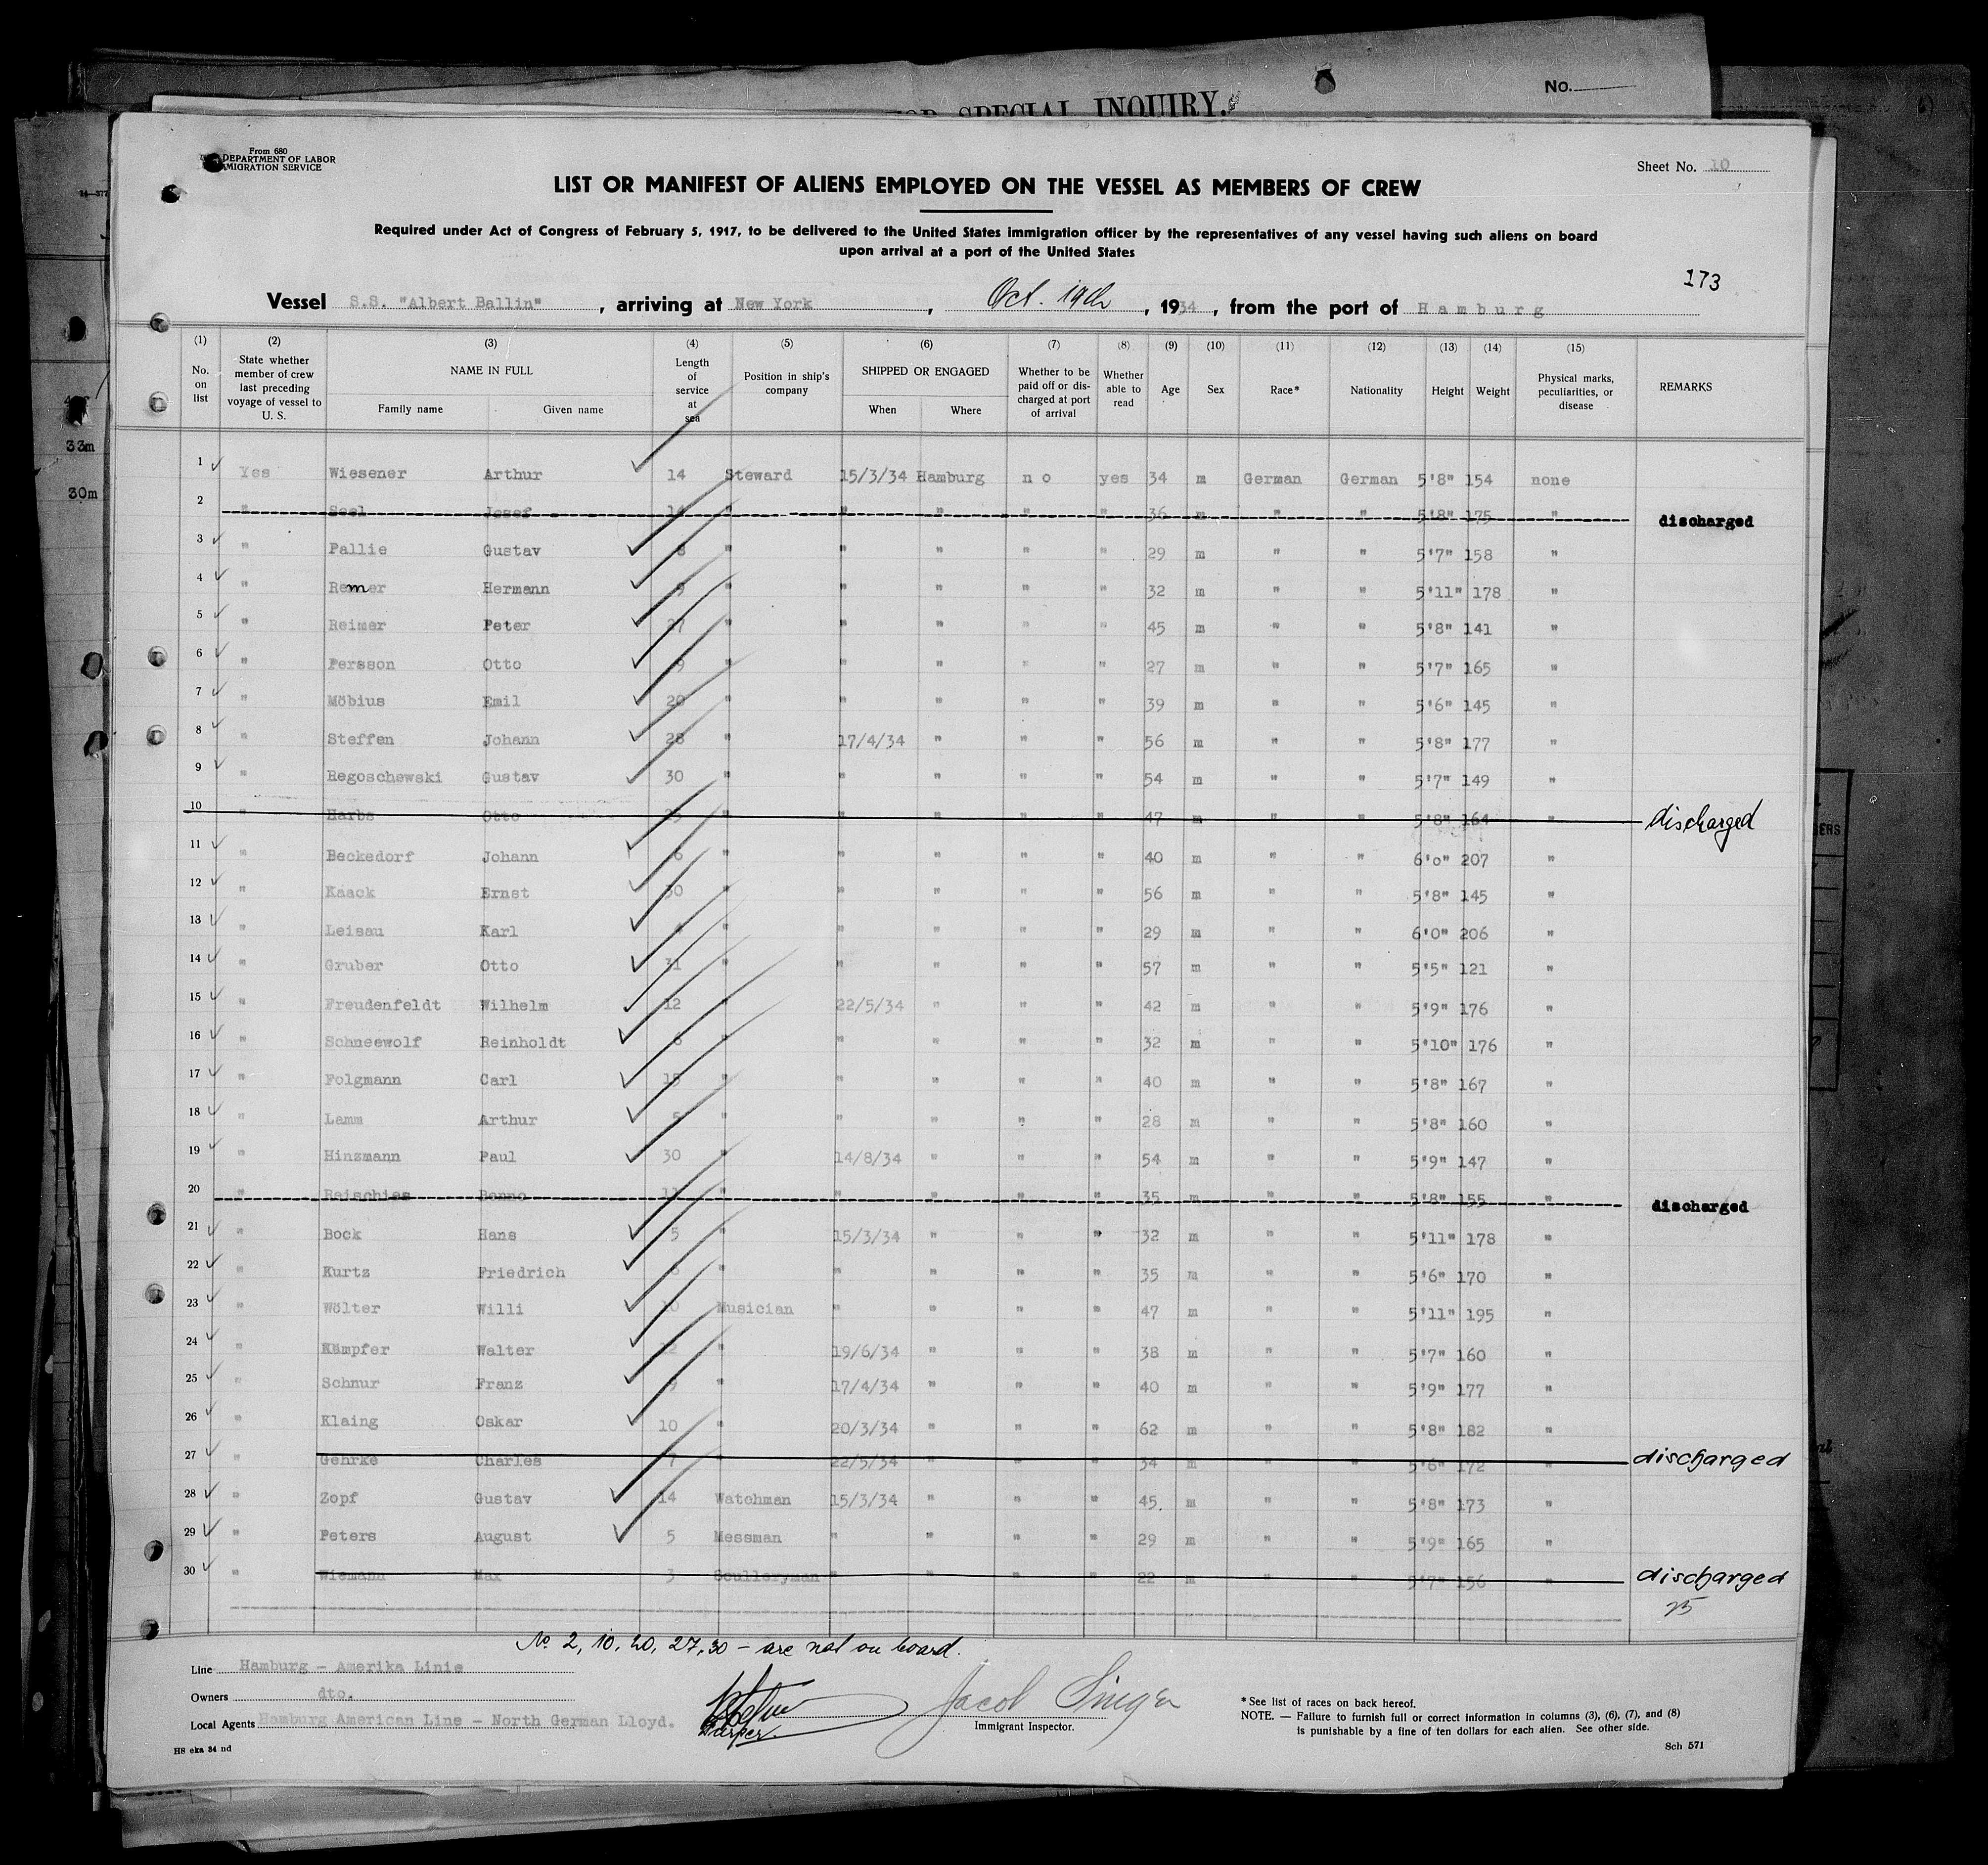 No.
FOR SPECIAL INQUIRY.
33m
30m
From 680
DEPARTMENT OF LABOR
IMMIGRATION SERVICE
Sheet No. 10
LIST OR MANIFEST OF ALIENS EMPLOYED ON THE VESSEL AS MEMBERS OF CREW
Required under Act of Congress of February 5, 1917, to be delivered to the United States immigration officer by the representatives of any vessel having such aliens on board
upon arrival at a port of the United States
173
Vessel S.S. "Albert Ballin" , arriving at New York , Oct. 19th , 1934 , from the port of Hamburg
(1) No. on list
(2) State whether member of crew last preceding voyage of vessel to U. S.
(3) NAME IN FULL Family name Given name
(4) Length of service at sea
(5) Position in ship's company
(6) SHIPPED OR ENGAGED When Where
(7) Whether to be paid off or discharged at port of arrival
(8) Whether able to read
(9) Age
(10) Sex
(11) Race*
(12) Nationality
(13) Height
(14) Weight
(15) Physical marks, peculiarities, or disease
REMARKS
1 Yes Wiesener Arthur 14 Steward 15/3/34 Hamburg no yes 34 m German German 5'8" 154 none
2 " Seel Josef 14 " " " " " 36 m " " 5'8" 175 " discharged
3 " Pallie Gustav 8 " " " " " 29 m " " 5'7" 158 "
4 " Remer Hermann 9 " " " " " 32 m " " 5'11" 178 "
5 " Reimer Peter 27 " " " " " 45 m " " 5'8" 141 "
6 " Persson Otto 9 " " " " " 27 m " " 5'7" 165 "
7 " Möbius Emil 20 " " " " " 39 m " " 5'6" 145 "
8 " Steffen Johann 28 " 17/4/34 " " " 56 m " " 5'8" 177 "
9 " Regoschewski Gustav 30 " " " " " 54 m " " 5'7" 149 "
10 " Harbs Otto 25 " " " " " 47 m " " 5'8" 164 " discharged
11 " Beckedorf Johann 6 " " " " " 40 m " " 6'0" 207 "
12 " Kaack Ernst 30 " " " " " 56 m " " 5'8" 145 "
13 " Leisau Karl 4 " " " " " 29 m " " 6'0" 206 "
14 " Gruber Otto 31 " " " " " 57 m " " 5'5" 121 "
15 " Freudenfeldt Wilhelm 12 " 22/5/34 " " " 42 m " " 5'9" 176 "
16 " Schneewolf Reinholdt 6 " " " " " 32 m " " 5'10" 176 "
17 " Folgmann Carl 15 " " " " " 40 m " " 5'8" 167 "
18 " Lamm Arthur 5 " " " " " 28 m " " 5'8" 160 "
19 " Hinzmann Paul 30 " 14/8/34 " " " 54 m " " 5'9" 147 "
20 " Reischies Benno 11 " " " " " 35 m " " 5'8" 155 " discharged
21 " Bock Hans 5 " 15/3/34 " " " 32 m " " 5'11" 178 "
22 " Kurtz Friedrich " " " " " 35 m " " 5'6" 170 "
23 " Wölter Willi 10 Musician " " " " 47 m " " 5'11" 195 "
24 " Kämpfer Walter 12 " 19/6/34 " " " 38 m " " 5'7" 160 "
25 " Schnur Franz 9 " 17/4/34 " " " 40 m " " 5'9" 177 "
26 " Klaing Oskar 10 " 20/3/34 " " " 62 m " " 5'8" 182 "
27 " Gehrke Charles 7 " 22/5/34 " " " 34 m " " 5'6" 172 " discharged
28 " Zopf Gustav 14 Watchman 15/3/34 " " " 45. m " " 5'8" 173 "
29 " Peters August 5 Messman " " " " 29 m " " 5'9" 165 "
30 " Wiemann Max 3 Sculleryman " " " " 22 m " " 5'7" 156 " discharged
25
No 2, 10, 20, 27, 30 – are not on board.
Line Hamburg - Amerika Linie
Owners dto.
Local Agents Hamburg American Line - North German Lloyd.
Jacob Singer
Immigrant Inspector.
* See list of races on back hereof.
NOTE. — Failure to furnish full or correct information in columns (3), (6), (7), and (8)
is punishable by a fine of ten dollars for each alien. See other side.
HS eka 34 nd
Sch 571